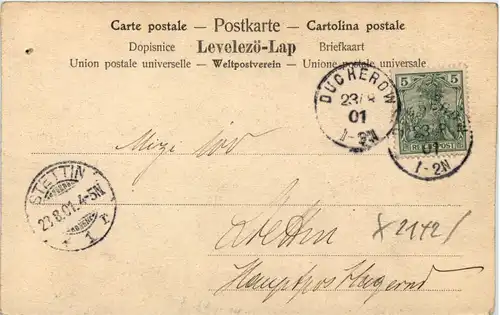 Carte postale — Postkarte — Cartolina postale
Dopisnice Levelezö-Lap Briefkaart
Union postale universelle — Weltpostverein — Unione postale universale
DUCHEROW
23/8
01
1-2N
5 5
REICHSPOST
23/8
01
1-2N
STETTIN
23.8.01.4-5N
* 1 r.
Stettin
Hauptpostlagernd